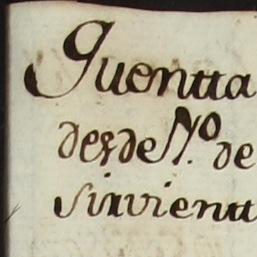 Quentta
desde N.º de
sirvientt